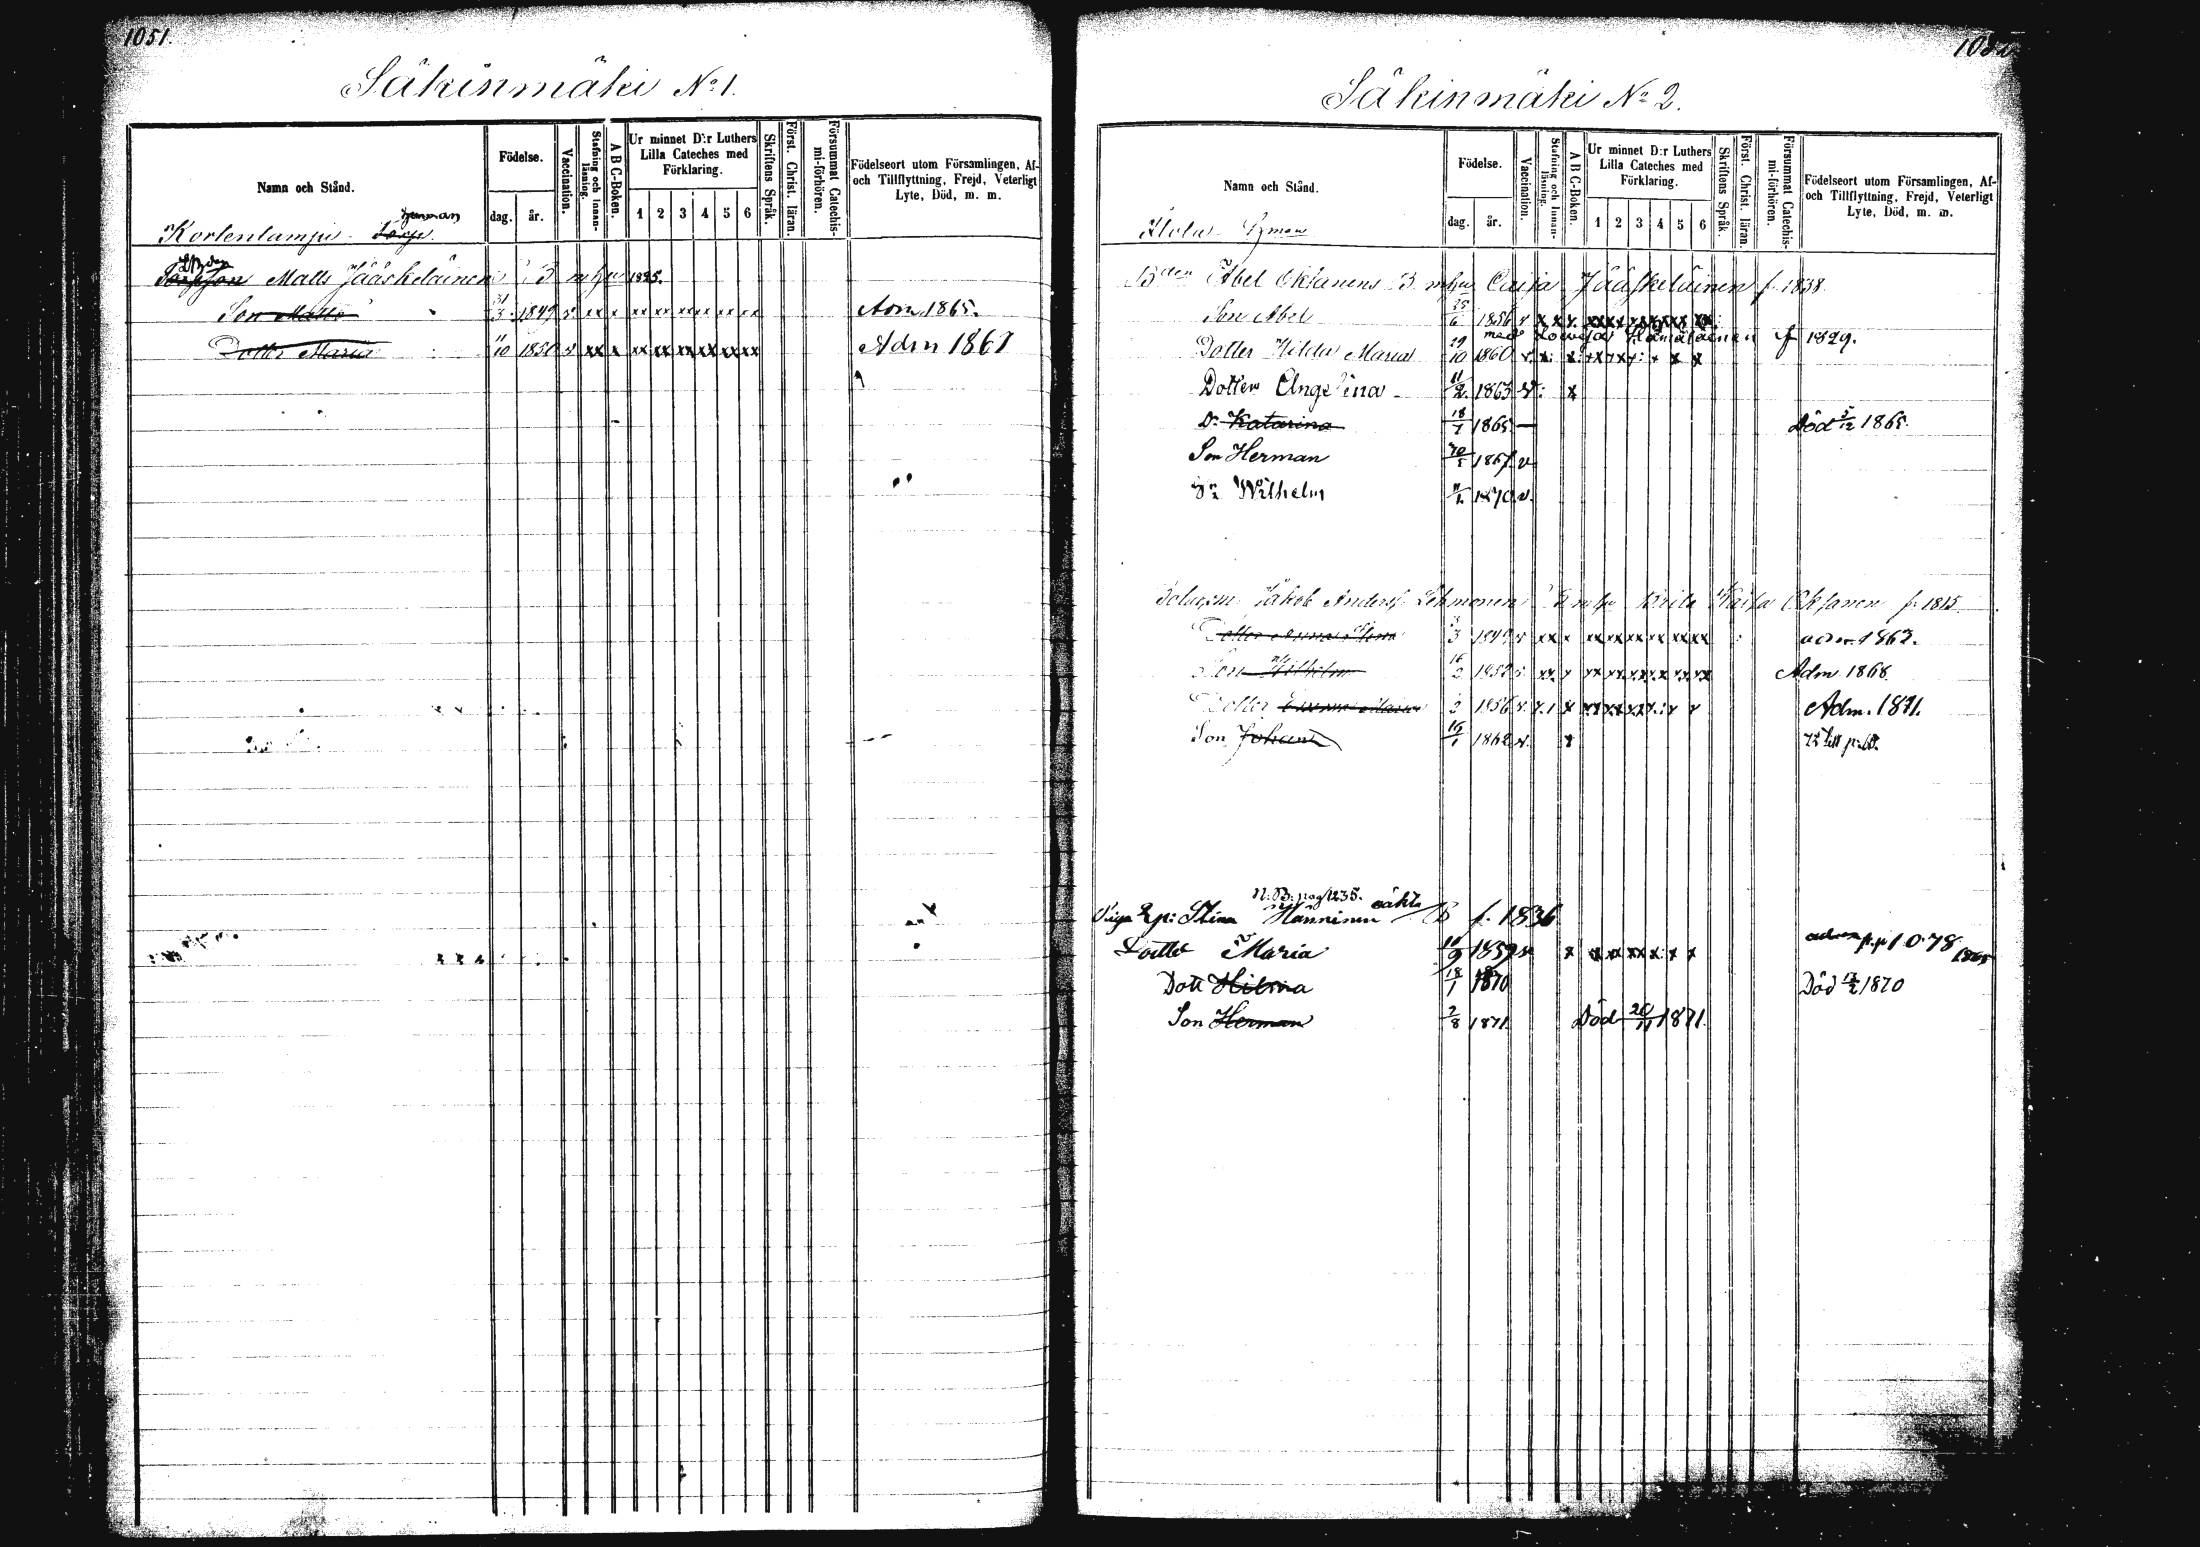 1051.
Säkinmäki No 1.
Namn och Stånd.
Födelse.
dag. år.
Vaccination.
Stafning och Innan-läsning.
A B C-Boken.
Ur minnet D:r Luthers Lilla Cateches med Förklaring.
1 2 3 4 5 6
Skriftens Språk.
Först. Christ. läran.
Försummat Catechis-mi-förhören.
Födelseort utom Församlingen, Af- och Tillflyttning, Frejd, Veterligt Lyte, Död, m. m.
Kortenlampi Torp
Matts Jääskeläinens B m hu 1825.
Son Matts 31/3 1849 v xx x xx xx xx xx xx xx Adm 1865.
Dotter Maria 11/10 1850 v xx x xx xx xx xx xx xx Adm 1867
Säkinmäki No 2.
Namn och Stånd.
Födelse.
dag. år.
Vaccination.
Stafning och Innan-läsning.
A B C-Boken.
Ur minnet D:r Luthers Lilla Cateches med Förklaring.
1 2 3 4 5 6
Skriftens Språk.
Först. Christ. läran.
Försummat Catechis-mi-förhören.
Födelseort utom Församlingen, Af- och Tillflyttning, Frejd, Veterligt Lyte, Död, m. m.
Abel Oksanens B m hu Caisa Jääskeläinen f. 1838.
Son Abel 25/6 1856 v
med Lovisa Hämäläinen f 1829.
Dotter Hilda Maria 29/10 1860
Dotter Angelina 11/2 1863 v x
Dr Katarina 18/1 1865 — Död 5/12 1865.
Son Herman 1867 v
Sn Wilhelm 1870 v.
Jakob Anders Lehmonen B m hu Brita Kaisa Oksanen f. 1815
Dotter 3 1849 v xx x xx xx xx xx xx xx adm 1862.
Son Wilhelm 16/2 1852 v Adm 1868
Dotter 1856 v Adm. 1871.
Son Johan 16/1 1862 v. x
N: B: pag 1235.
Stina Hänninen oäkta B f. 1836
Dotter Maria 1859 v x p. p 1078
Dott Hilma 18/1 1870 Död 1870
Son Herman 2/8 1871 Död 26/11 1871.